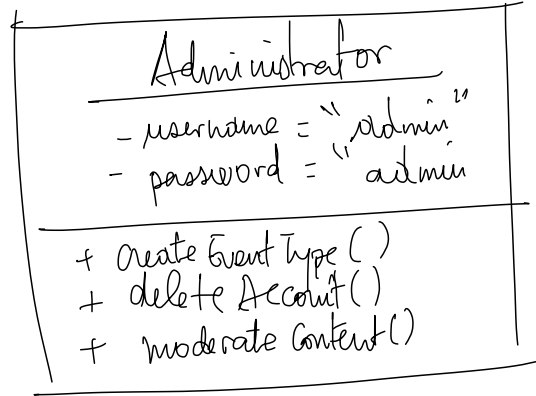 Administrator
- username = "admin"
- password = "admin
+ createEventType()
+ deleteAccount()
+ moderateContent()